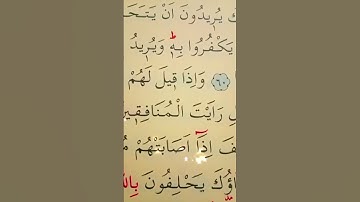 يُرِيدُونَ اَنْ
يَكْفُرُوا بِهٖ وَيُرِيدُ
﴿٦٠﴾ وَاِذَا قٖيلَ لَهُمْ
رَاَيْتَ الْمُنَافِقٖينَ
اِذَٓا اَصَابَتْهُمْ
يَحْلِفُونَ